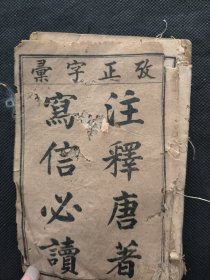 攷正字彙
注釋唐著
寫信必讀